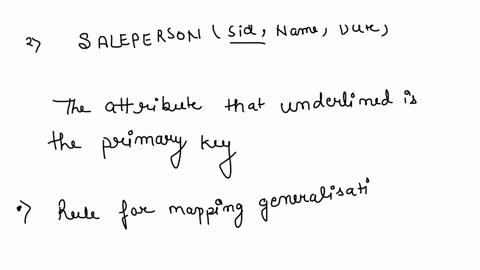 2) SALEPERSON ( Sid, Name, Date,
The attribute that underlined is
the primary key
•) Rule for mapping generalisati